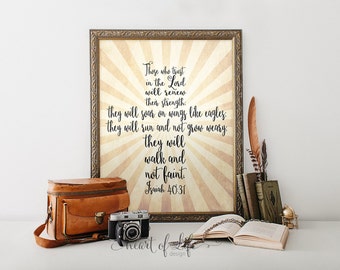 Those who trust
in the Lord
will renew
their strength.
they will soar on wings like eagles,
they will run and not grow weary,
they will
walk and
not faint.
Isaiah 40:31
heart of Life
design